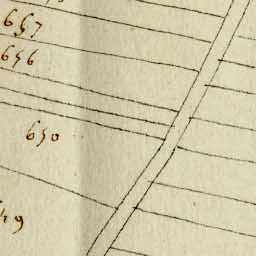 657
656
650